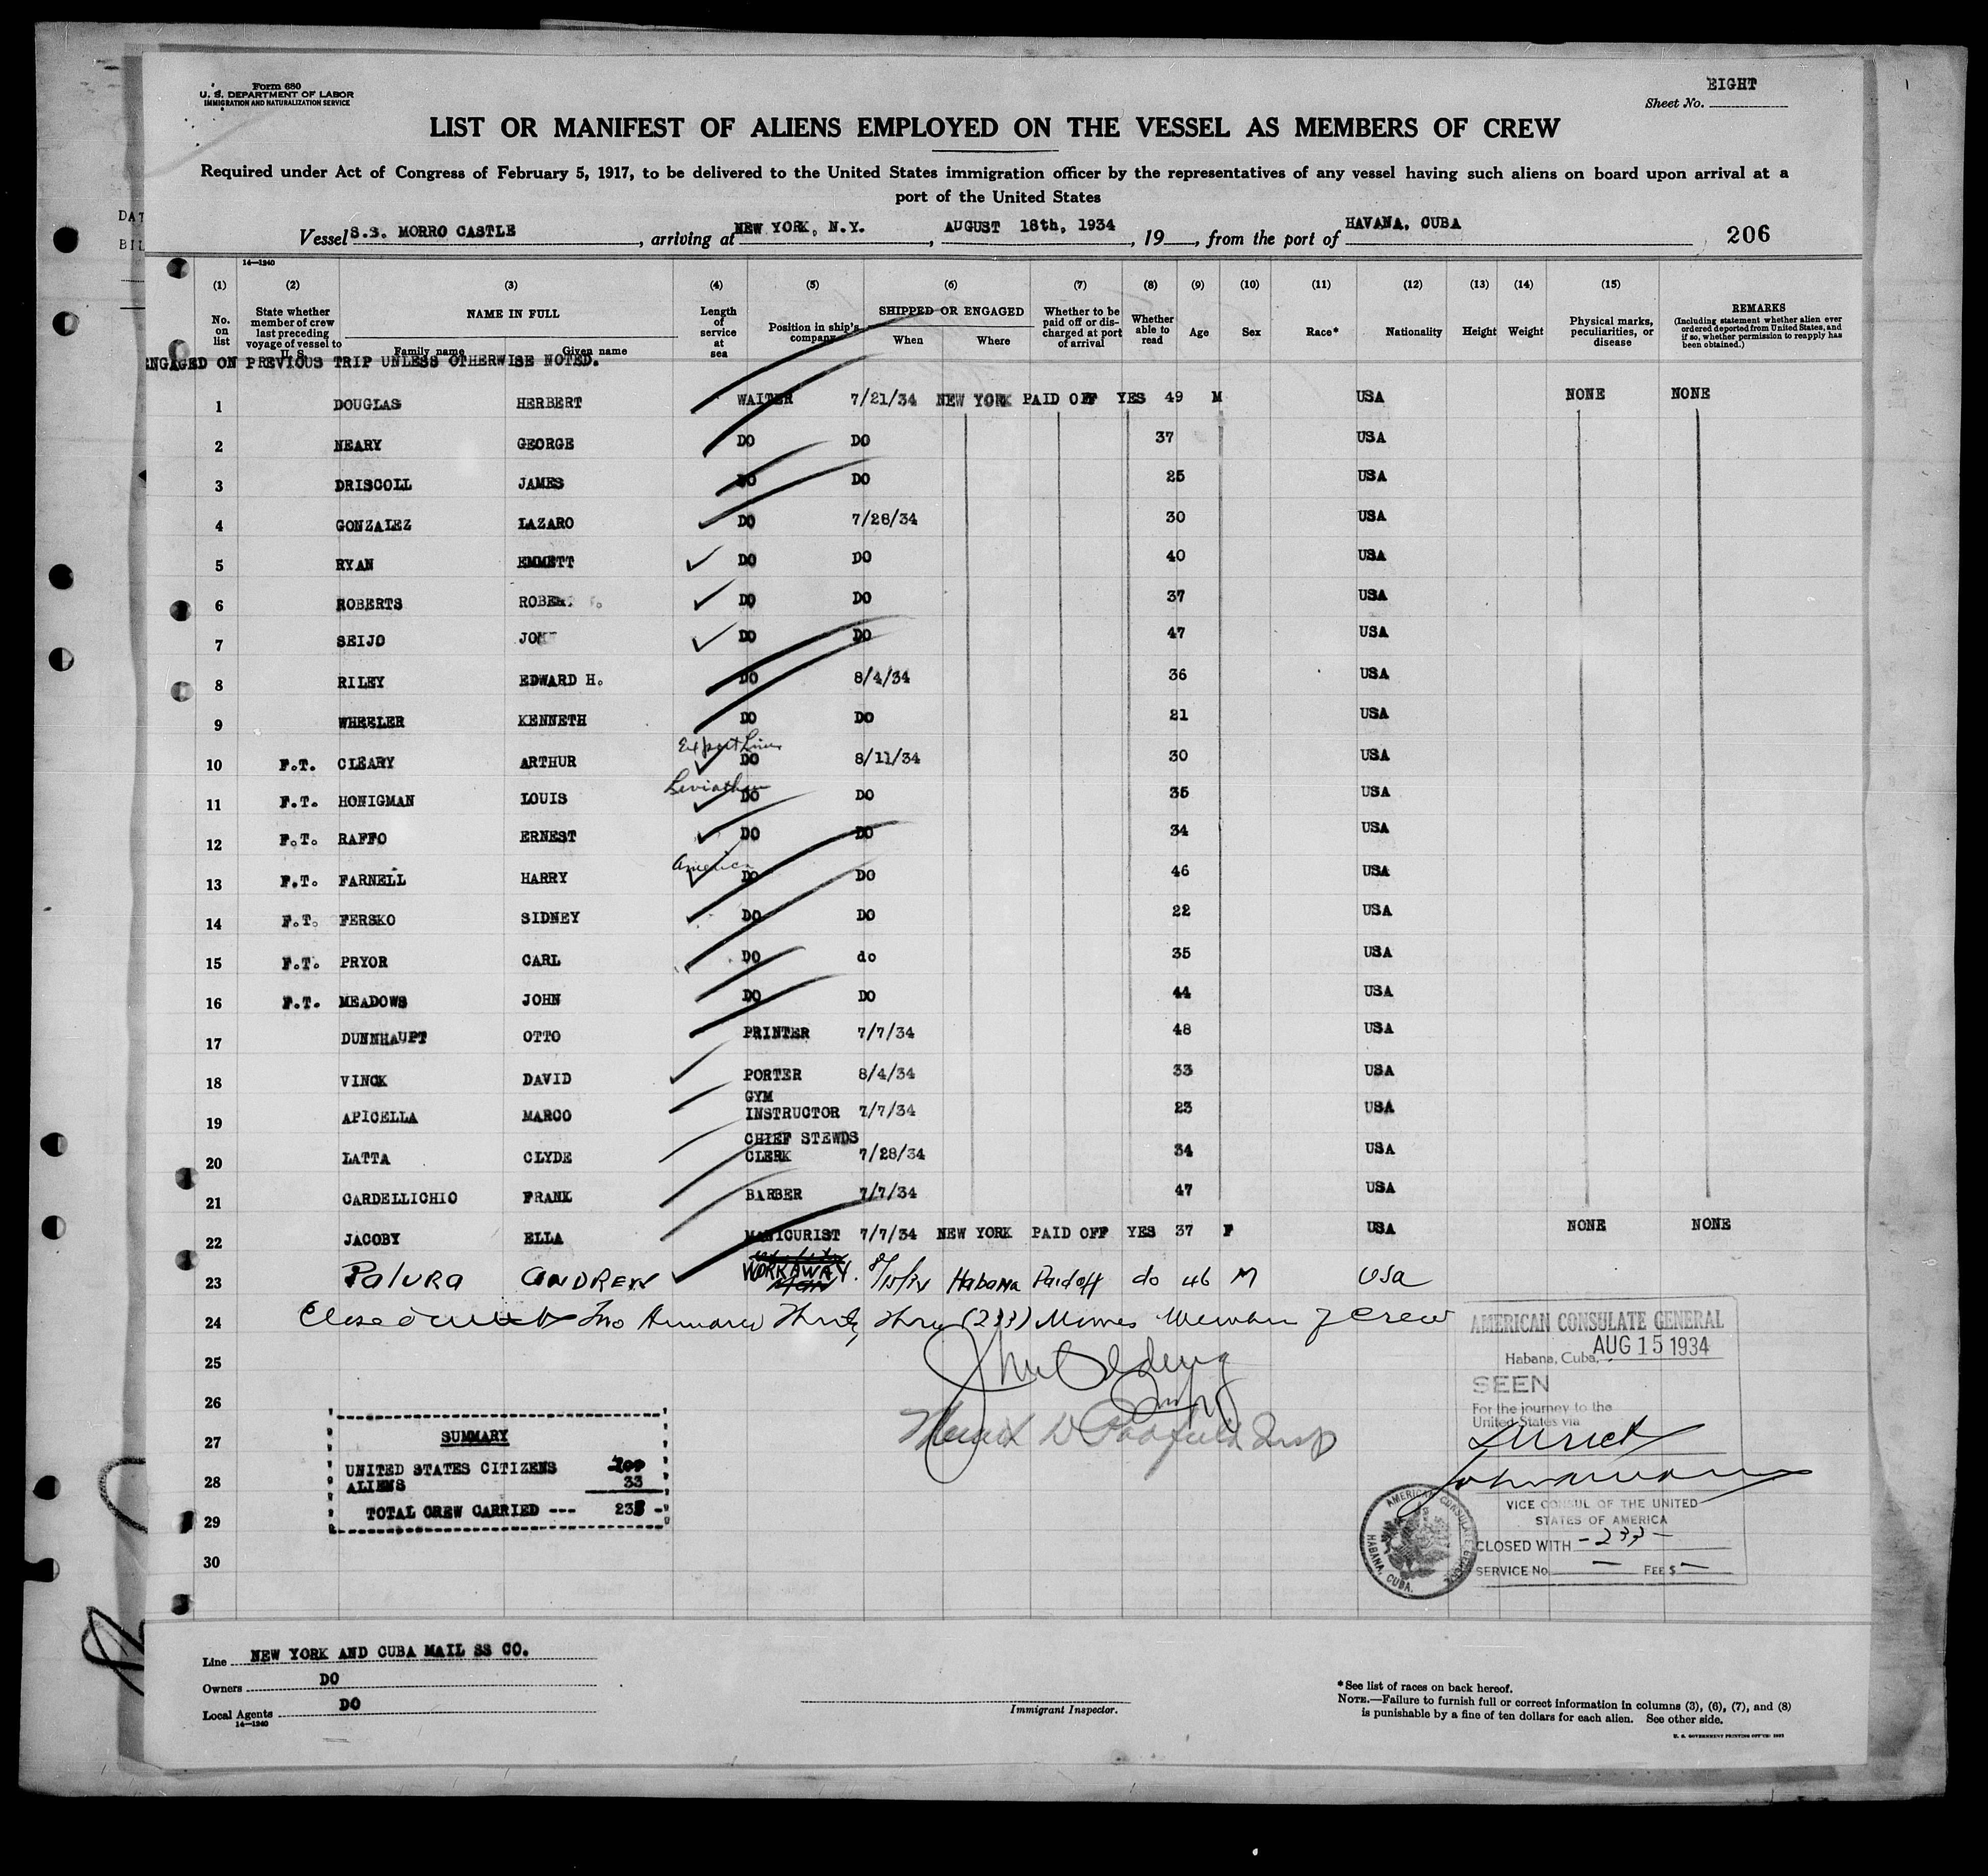 Form 680
U. S. DEPARTMENT OF LABOR
IMMIGRATION AND NATURALIZATION SERVICE
EIGHT
Sheet No.
LIST OR MANIFEST OF ALIENS EMPLOYED ON THE VESSEL AS MEMBERS OF CREW
Required under Act of Congress of February 5, 1917, to be delivered to the United States immigration officer by the representatives of any vessel having such aliens on board upon arrival at a
port of the United States
Vessel S.S. MORRO CASTLE, arriving at NEW YORK, N.Y., AUGUST 18th, 1934, 19, from the port of HAVANA, CUBA 206
14—1240
(1) (2) (3) (4) (5) (6) (7) (8) (9) (10) (11) (12) (13) (14) (15)
No. on list
State whether member of crew last preceding voyage of vessel to U. S.
NAME IN FULL
Family name Given name
Length of service at sea
Position in ship's company
SHIPPED OR ENGAGED
When Where
Whether to be paid off or discharged at port of arrival
Whether able to read
Age
Sex
Race*
Nationality
Height
Weight
Physical marks, peculiarities, or disease
REMARKS
(Including statement whether alien ever ordered deported from United States, and if so, whether permission to reapply has been obtained.)
ENGAGED ON PREVIOUS TRIP UNLESS OTHERWISE NOTED.
1 DOUGLAS HERBERT WAITER 7/21/34 NEW YORK PAID OFF YES 49 M USA NONE NONE
2 NEARY GEORGE DO DO 37 USA
3 DRISCOLL JAMES DO DO 25 USA
4 GONZALEZ LAZARO DO 7/28/34 30 USA
5 RYAN EMMETT DO DO 40 USA
6 ROBERTS DO DO 37 USA
7 SEIJO DO DO 47 USA
8 RILEY EDWARD H. DO 8/4/34 36 USA
9 WHEELER KENNETH DO DO 21 USA
Export Lines
10 F.T. CLEARY ARTHUR DO 8/11/34 30 USA
Leviathan
11 F.T. HONIGMAN LOUIS DO DO 35 USA
12 F.T. RAFFO ERNEST DO DO 34 USA
America
13 F.T. FARNELL HARRY DO DO 46 USA
14 F.T. FERSKO SIDNEY DO DO 22 USA
15 F.T. PRYOR CARL DO do 35 USA
16 F.T. MEADOWS JOHN DO DO 44 USA
17 DUNNHAUPT OTTO PRINTER 7/7/34 48 USA
18 VINCK DAVID PORTER 8/4/34 33 USA
19 APICELLA MARCO GYM INSTRUCTOR 7/7/34 23 USA
20 LATTA CLYDE CHIEF STEWDS CLERK 7/28/34 34 USA
21 CARDELLICHIO FRANK BARBER 7/7/34 47 USA
22 JACOBY ELLA MANICURIST 7/7/34 NEW YORK PAID OFF YES 37 F USA NONE NONE
23 Palura ANDREW WORKAWAY. Habana Paid off do 46 M USA
24 Two Hundred Thirty Three (233) Crew
25
26
27
28
29
30
SUMMARY
UNITED STATES CITIZENS
ALIENS 33
TOTAL CREW CARRIED ---
AMERICAN CONSULATE GENERAL
Habana, Cuba, AUG 15 1934
SEEN
For the journey to the
United States via
VICE CONSUL OF THE UNITED
STATES OF AMERICA
CLOSED WITH - 233 -
SERVICE No. — FEE $ —
AMERICAN CONSULATE GENERAL
HABANA, CUBA.
Line NEW YORK AND CUBA MAIL SS CO.
Owners DO
Local Agents DO
14—1240
Immigrant Inspector.
*See list of races on back hereof.
NOTE.—Failure to furnish full or correct information in columns (3), (6), (7), and (8)
is punishable by a fine of ten dollars for each alien. See other side.